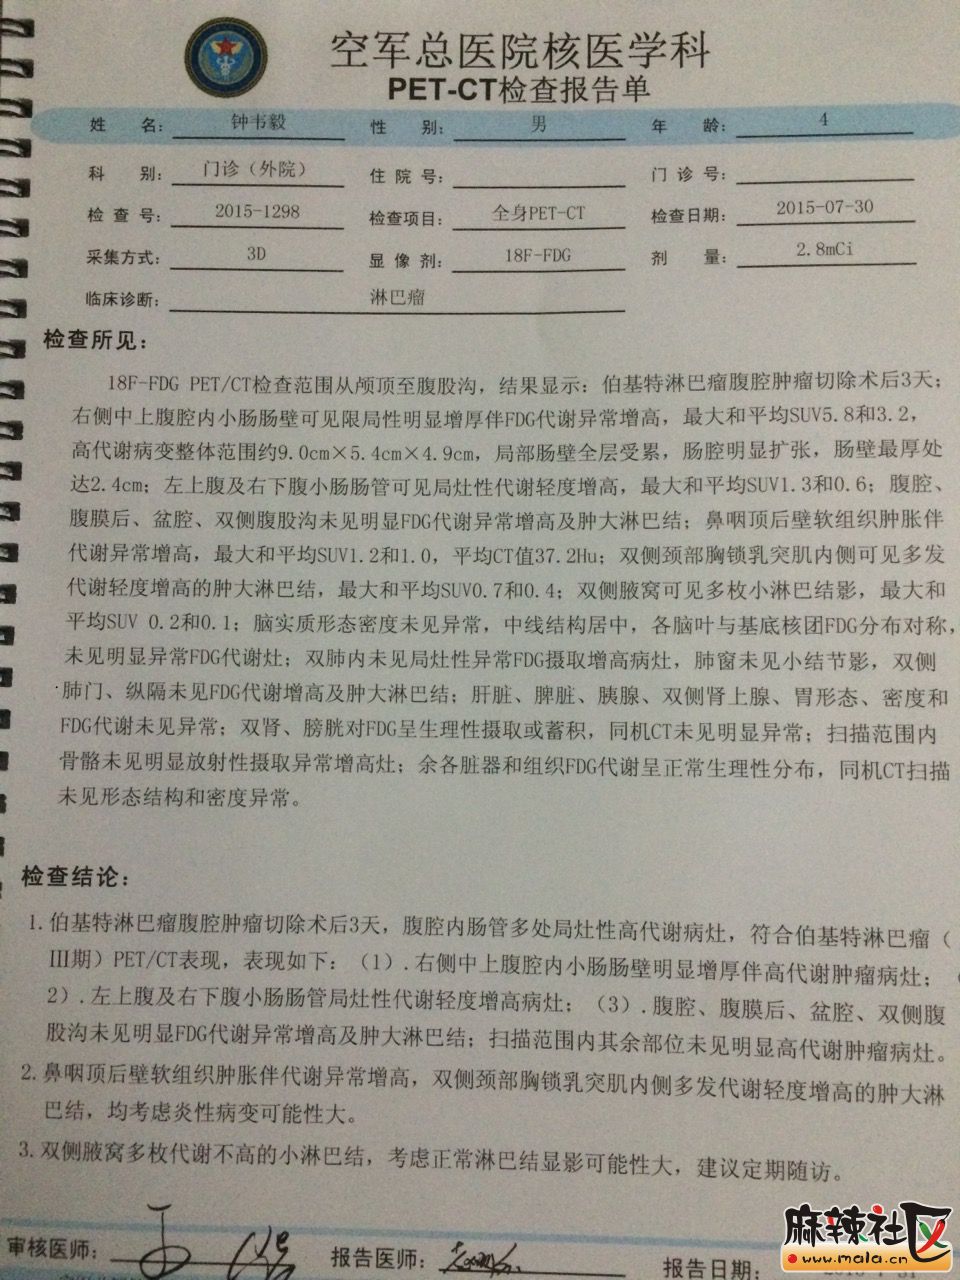 空军总医院核医学科
PET-CT检查报告单
姓 名： 钟韦毅 性 别： 男 年 龄： 4
科 别： 门诊（外院） 住 院 号： 门 诊 号：
检 查 号： 2015-1298 检查项目： 全身PET-CT 检查日期： 2015-07-30
采集方式： 3D 显 像 剂： 18F-FDG 剂 量： 2.8mCi
临床诊断： 淋巴瘤
检查所见：
18F-FDG PET/CT检查范围从颅顶至腹股沟，结果显示：伯基特淋巴瘤腹腔肿瘤切除术后3天；
右侧中上腹腔内小肠肠壁可见限局性明显增厚伴FDG代谢异常增高，最大和平均SUV5.8和3.2，
高代谢病变整体范围约9.0cm×5.4cm×4.9cm，局部肠壁全层受累，肠腔明显扩张，肠壁最厚处
达2.4cm；左上腹及右下腹小肠肠管可见局灶性代谢轻度增高，最大和平均SUV1.3和0.6；腹腔、
腹膜后、盆腔、双侧腹股沟未见明显FDG代谢异常增高及肿大淋巴结；鼻咽顶后壁软组织肿胀伴
代谢异常增高，最大和平均SUV1.2和1.0，平均CT值37.2Hu；双侧颈部胸锁乳突肌内侧可见多发
代谢轻度增高的肿大淋巴结，最大和平均SUV0.7和0.4；双侧腋窝可见多枚小淋巴结影，最大和
平均SUV 0.2和0.1；脑实质形态密度未见异常，中线结构居中，各脑叶与基底核团FDG分布对称，
未见明显异常FDG代谢灶；双肺内未见局灶性异常FDG摄取增高病灶，肺窗未见小结节影，双侧
肺门、纵隔未见FDG代谢增高及肿大淋巴结；肝脏、脾脏、胰腺、双侧肾上腺、胃形态、密度和
FDG代谢未见异常；双肾、膀胱对FDG呈生理性摄取或蓄积，同机CT未见明显异常；扫描范围内
骨骼未见明显放射性摄取异常增高灶；余各脏器和组织FDG代谢呈正常生理性分布，同机CT扫描
未见形态结构和密度异常。
检查结论：
1. 伯基特淋巴瘤腹腔肿瘤切除术后3天，腹腔内肠管多处局灶性高代谢病灶，符合伯基特淋巴瘤（
Ⅲ期）PET/CT表现，表现如下：（1）.右侧中上腹腔内小肠肠壁明显增厚伴高代谢肿瘤病灶；（
2）.左上腹及右下腹小肠肠管局灶性代谢轻度增高病灶；（3）.腹腔、腹膜后、盆腔、双侧腹
股沟未见明显FDG代谢异常增高及肿大淋巴结；扫描范围内其余部位未见明显高代谢肿瘤病灶。
2. 鼻咽顶后壁软组织肿胀伴代谢异常增高，双侧颈部胸锁乳突肌内侧多发代谢轻度增高的肿大淋
巴结，均考虑炎性病变可能性大。
3. 双侧腋窝多枚代谢不高的小淋巴结，考虑正常淋巴结显影可能性大，建议定期随访。
审核医师： 报告医师： 报告日期：
麻辣社区
www.mala.cn